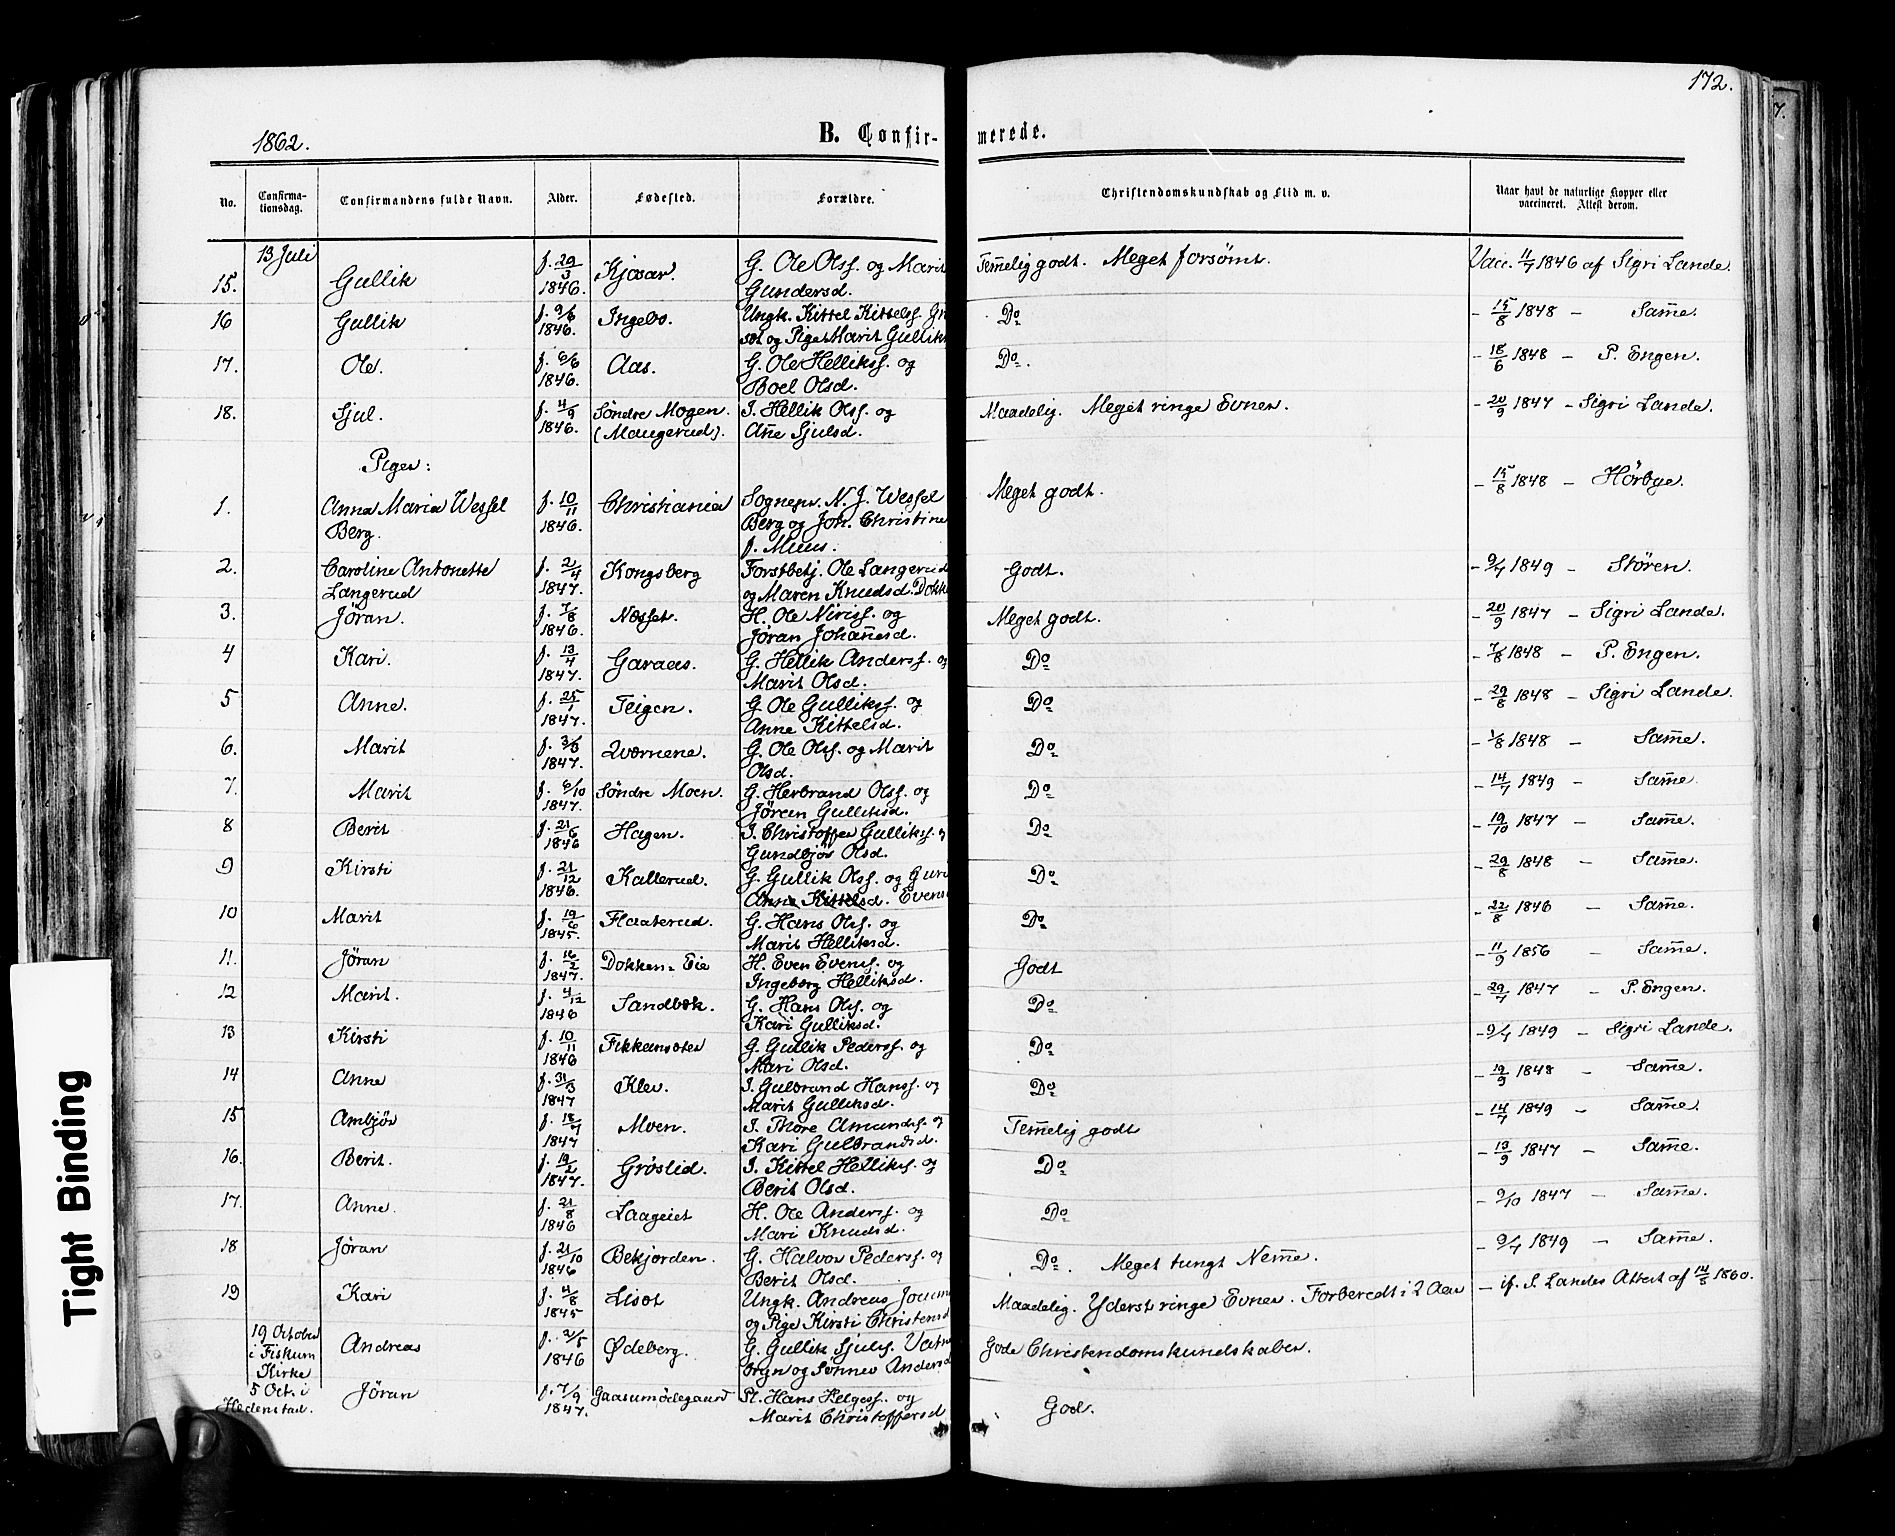 172.
1862.
B. Confir- merede.
No. Confirma-tionsdag. Confirmandens fulde Navn. Alder. Fødested. Forældre. Christendomskundskab og Flid m. v. Naar havt de naturlige Kopper eller vaccineret. Attest derom.
13 Juli
15. Gullik f. 29/3 1846. Kjøsar. G. Ole Olsf. og Marit Gundersd. Temelig godt. Meget forsømt. Vacc. 11/7 1846 af Sigri Lande.
16 Gullik f. 9/6 1846. Ingebo. Ungk. Kittel Kittelsf. og Pige Marit Gulliks Do - 15/8 1848 - Same.
17. Ole. f. 6/6 1846. Aas. G. Ole Helliksf. og Boel Olsd. Do. - 18/6 1848 - P. Engen.
18. Sjul. f. 4/9 1846. Søndre Mogen. (Maugerud). I. Hellik Olsf. og Ane Sjulsd. Maadelig. Meget ringe Evner. - 20/9 1847 - Sigri Lande.
Piger:
1. Anna Maria Wessel Berg. f. 10/11 1846. Christiania Sognepr. N. J. Wessel Berg og Joh. Christine f. Muus. Meget godt. - 15/8 1848 - Hörbye.
2. Caroline Antonette Langerud f. 2/4 1847. Kongsberg Forstbetj. Ole Langerud og Maren Knudsd. Dokk Godt. - 9/7 1849 - Stören.
3. Jöran. f. 7/8 1846. Næsset. H. Ole Nirisf. og Jöran Johanesd. Meget godt. - 20/9 1847 - Sigri Lande.
4 Kari. f. 13/4 1847. Garaas. G. Hellik Andersf. og Marit Olsd. Do - 7/8 1848 - P. Engen.
5 Anne. f. 25/1 1847. Teigen. G. Ole Gulliksf. og Anne Kittelsd. Do - 29/8 1848 - Sigri Lande.
6. Marit f. 3/3 1847. Qværnene. G. Ole Olsf. og Marit Olsd. Do - 1/8 1848 - Same.
7. Marit f. 6/10 1847. Søndre Moen. G. Herbrand Olsf. og Jören Gulliksd. Do - 14/7 1849 - Same.
8 Berit f. 21/6 1846 Hagen. I. Christoffer Gulliksf. og Gundbjør Olsd. Do - 19/10 1847 - Same.
9 Kirsti f. 21/12 1846. Kallerud. G. Gullik Olsf. og Guri Anne Kittelsd. Evens Do - 29/8 1848 - Same.
10 Marit f. 19/6 1845. Flaaterud. G. Hans Olsf. og Marit Helliksd. Do - 22/8 1846 - Same.
11. Jöran f. 16/2 1847. Dokken=Eie H. Even Evensf. og Ingeborg Helliksd. Godt - 11/9 1856 - Same.
12 Marit. f. 4/12 1846 Sandbæk. G. Hans Olsf. og Kari Gulliksd. Do - 29/7 1847 - P. Engen.
13 Kirsti f. 10/11 1846 Fikkansæter G. Gullik Pedersf. og Mari Olsd. Do - 9/7 1849 - Sigri Lande.
14 Anne f. 31/3 1847 Klev. I. Gulbrand Hansf. og Marit Gulliksd. Do - 19/9 1848 - Same.
15 Ambjør f. 18/7 1847 Moen. I. Thore Amundsf. og Kari Gulbrandsd. Temelig godt - 14/7 1849 - Same.
16. Berit. f. 19/2 1847. Grøslid. I. Kittel Helliksf. og Berit Olsd. Do - 13/9 1847 - Same.
17. Anne. f. 21/8 1846 Laageiet H. Ole Andersf. og Mari Knudsd. Do - 9/10 1847 - Same.
18 Jöran f. 21/10 1846 Bekjorden. G. Halvor Pedersf. og Berit Olsd. Do. Meget tungt Neme. - 9/7 1849 - Same.
19 Kari f. 4/8 1845 Lisæt Ungk. Andreas og Pige Kirsti Christensd Maadelig. Yderst ringe Evner. Forberedt i 2 Aar - if. S. Landes Attest af 14/5 1860.
19 October i Fiskum Kirke Andreas f. 2/5 1846 Ødeberg. G. Gullik Sjulsf. og Sønnev Andersd Gode Christendomskundskaber.
5 Oct. i Hedenstad. Jöran f. 7/9 1847. Gaasumødegaard Pl. Hans Helgesf. og Marit Christoffersd God.
Tight Binding